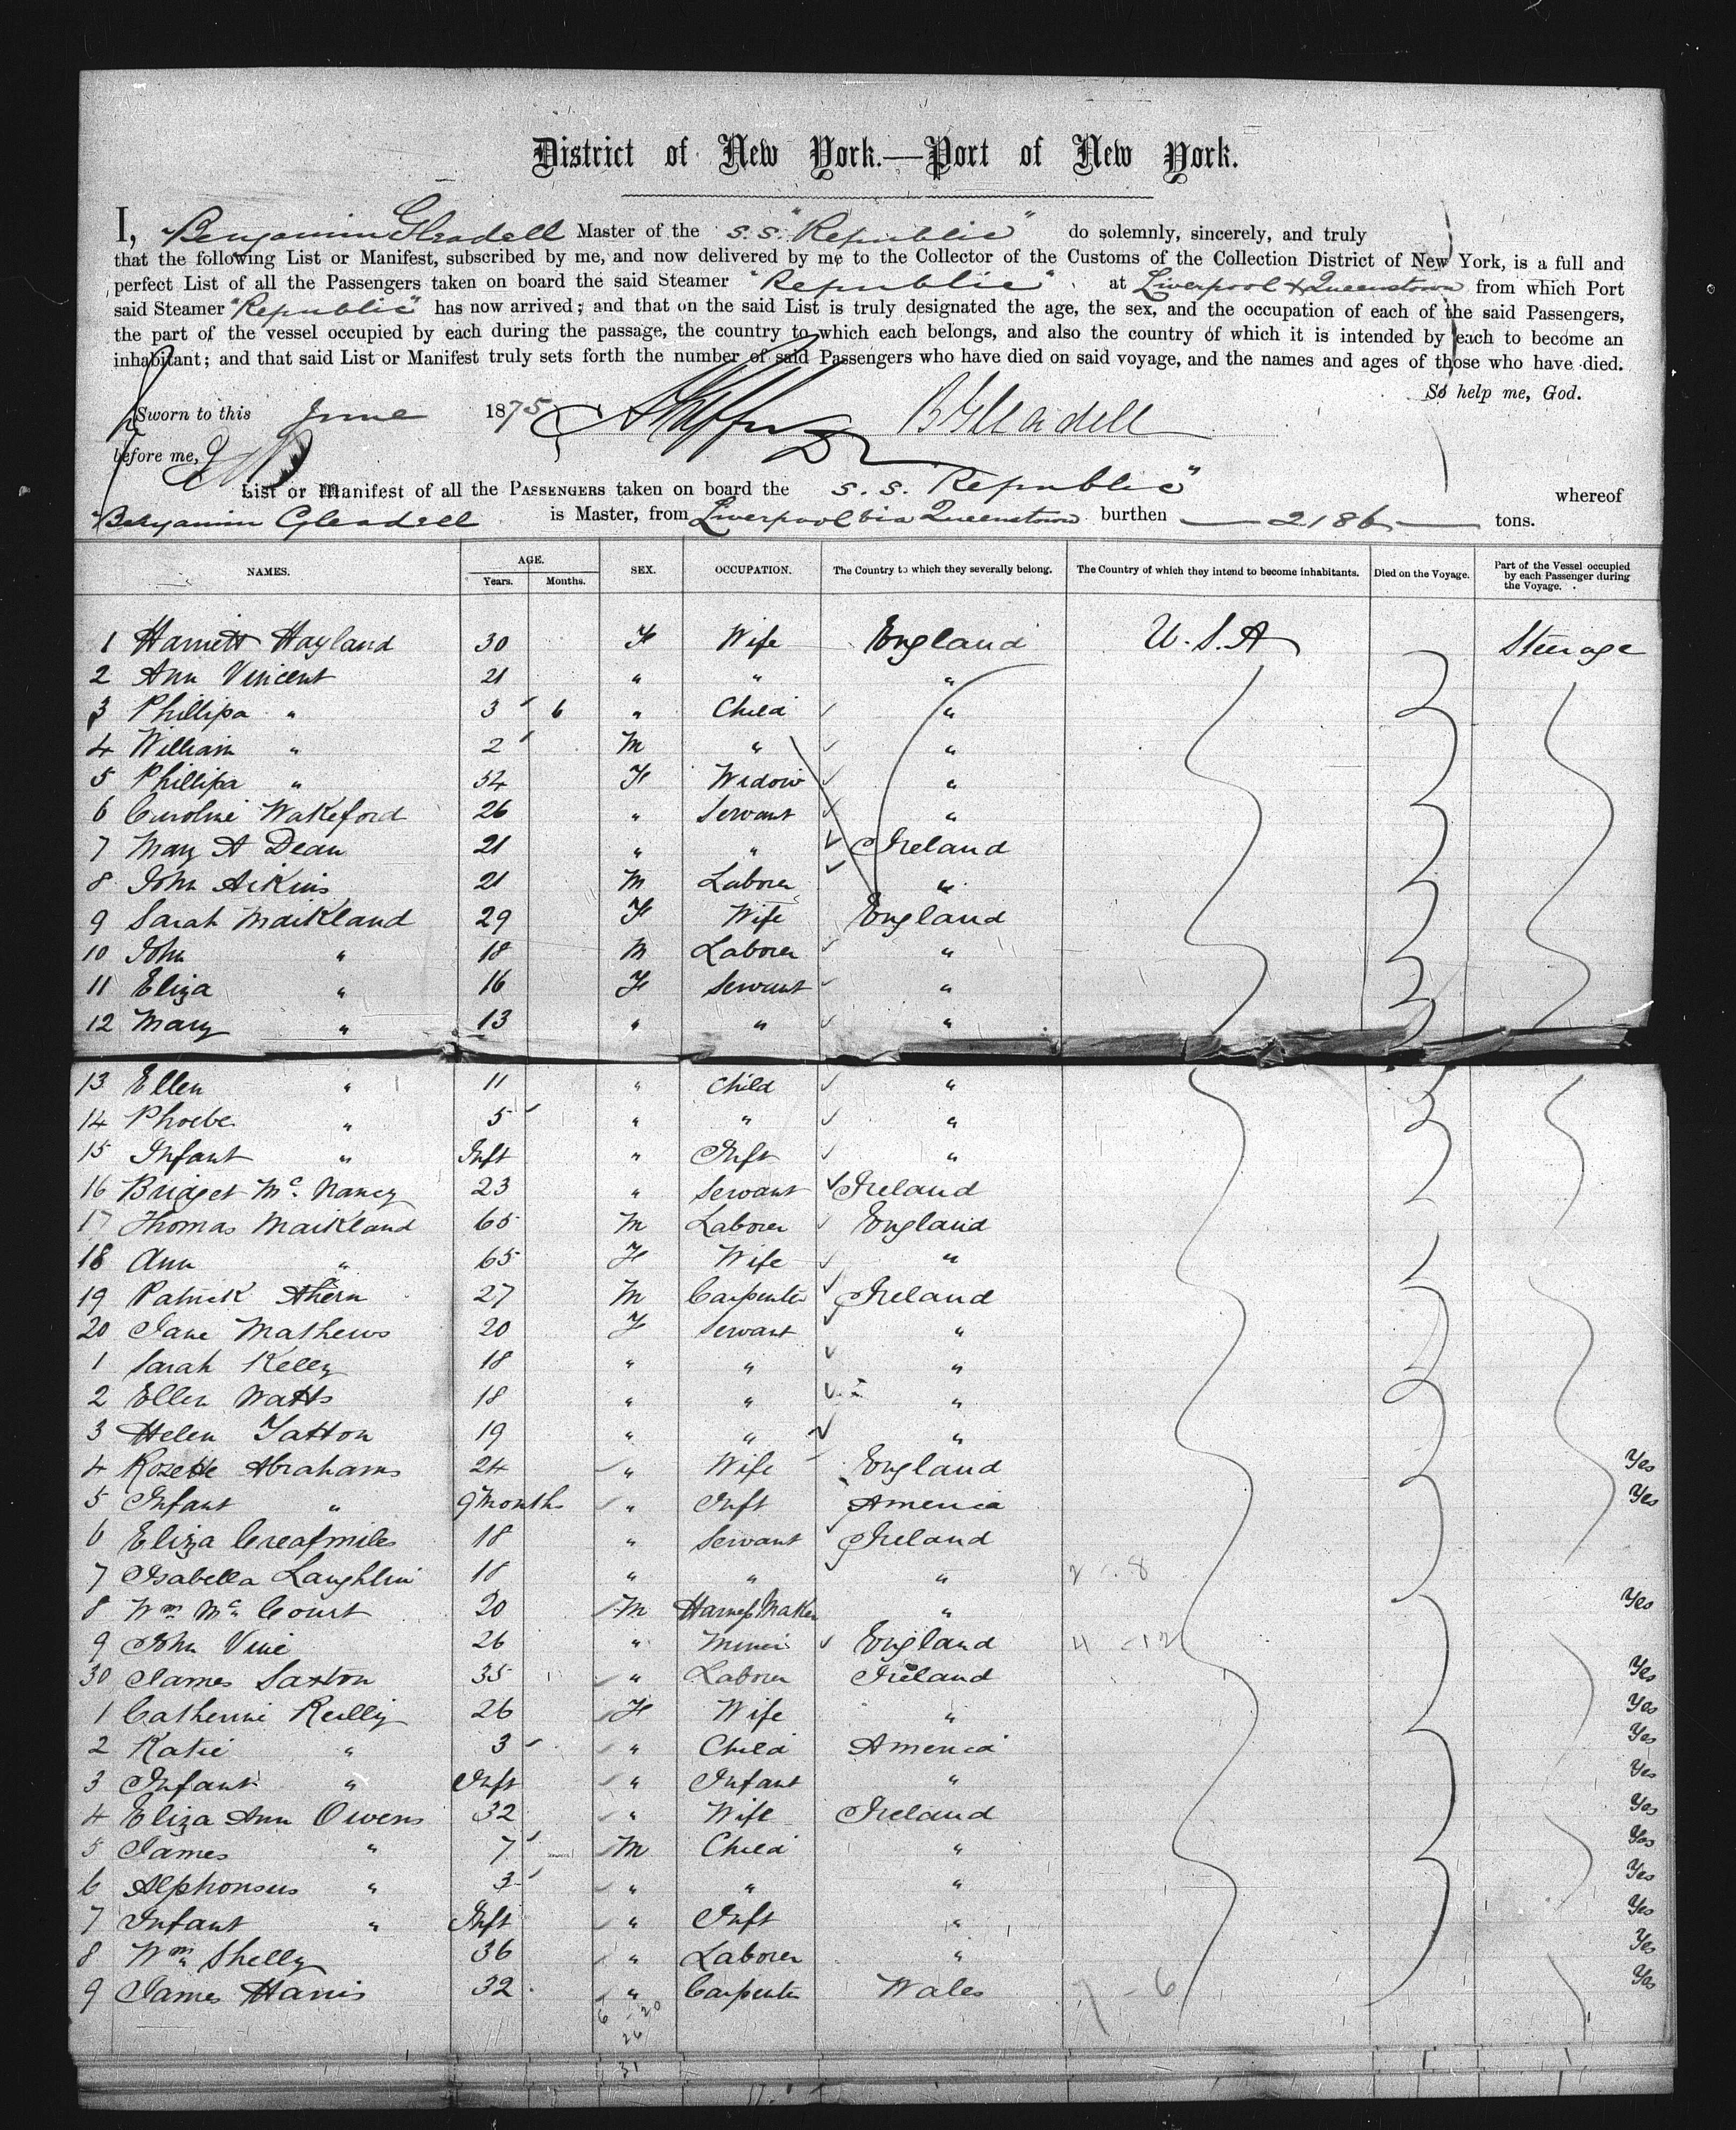 District of New York.—Port of New York.
I, Benjamin Gleadell Master of the s.s. "Republic" do solemnly, sincerely, and truly
that the following List or Manifest, subscribed by me, and now delivered by me to the Collector of the Customs of the Collection District of New York, is a full and
perfect List of all the Passengers taken on board the said Steamer "Republic" at Liverpool & Queenstown from which Port
said Steamer "Republic" has now arrived; and that on the said List is truly designated the age, the sex, and the occupation of each of the said Passengers,
the part of the vessel occupied by each during the passage, the country to which each belongs, and also the country of which it is intended by each to become an
inhabitant; and that said List or Manifest truly sets forth the number of said Passengers who have died on said voyage, and the names and ages of those who have died.
So help me, God.
Sworn to this June 1875 B Gleadell
before me,
List or Manifest of all the PASSENGERS taken on board the s.s. "Republic" whereof
Benjamin Gleadell is Master, from Liverpool via Queenstown burthen 2186 tons.
NAMES. AGE. Years. Months. SEX. OCCUPATION. The Country to which they severally belong. The Country of which they intend to become inhabitants. Died on the Voyage. Part of the Vessel occupied by each Passenger during the Voyage.
1 Harriett Hayland 30 F Wife England U.S.A Steerage
2 Ann Vincent 21 " " "
3 Phillipa " 3 6 " Child "
4 William " 2 M " "
5 Phillipa " 54 F Widow "
6 Caroline Wakeford 26 " Servant "
7 Mary A Dean 21 " " Ireland
8 John Aikins 21 M Laborer "
9 Sarah Maikland 29 F Wife England
10 John " 18 M Laborer "
11 Eliza " 16 F Servant "
12 Mary " 13 " " "
13 Ellen " 11 " Child "
14 Phoebe " 5 " " "
15 Infant " Inft " Inft "
16 Bridget Mc Nancy 23 " Servant Ireland
17 Thomas Maikland 65 M Laborer England
18 Ann " 65 F Wife "
19 Patrick Ahern 27 M Carpenter Ireland
20 Jane Mathews 20 F Servant "
1 Sarah Kelly 18 " " "
2 Ellen Watts 18 " " "
3 Helen Tatton 19 " " "
4 Rozette Abrahams 24 " Wife England Yes
5 Infant " 9 Months " Inft America Yes
6 Eliza Creafmiles 18 " Servant Ireland
7 Isabella Laughlin 18 " " "
8 Wm Mc Court 20 M Harness Maker " Yes
9 John Vine 26 " Miner England
30 James Saxton 35 " Laborer Ireland Yes
1 Catherine Reilly 26 F Wife " Yes
2 Katie " 3 " Child America Yes
3 Infant " Inft " Infant " Yes
4 Eliza Ann Owens 32 " Wife Ireland Yes
5 James " 7 M Child " Yes
6 Alphonsus " 3 " " " Yes
7 Infant " Inft " Inft " Yes
8 Wm Shelly 36 " Laborer " Yes
9 James Harris 32 " Carpenter Wales Yes